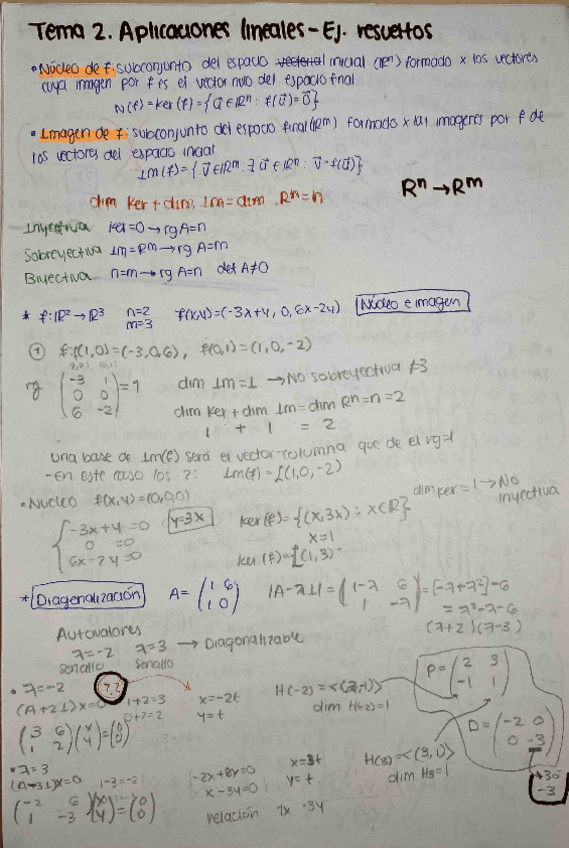 Tema 2. Aplicaciones lineales - Ej. resueltos
• Núcleo de f: subconjunto del espacio vectorial inicial (ℝⁿ) formado x los vectores
cuya imagen por f es el vector nulo del espacio final
N(f) = ker(f) = {u⃗ ∈ ℝⁿ : f(u⃗) = 0⃗}
• Imagen de f: subconjunto del espacio final (ℝᵐ) formado x las imagenes por f de
los vectores del espacio inicial
Im(f) = {v⃗ ∈ ℝᵐ : ∃ u⃗ ∈ ℝⁿ : v⃗ = f(u⃗)}
ℝⁿ → ℝᵐ
dim ker + dim Im = dim ℝⁿ = n
Inyectiva ker = 0 → rg A = n
Sobreyectiva Im = ℝᵐ → rg A = m
Biyectiva n = m → rg A = n det A ≠ 0
* f: ℝ² → ℝ³ n=2 f(x,y) = (-3x+y, 0, 6x-2y) Núcleo e imagen
m=3
① f: f(1,0) = (-3,0,6), f(0,1) = (1,0,-2)
(1,0) (0,1)
rg (-3 1) = 1 dim Im = 1 → No sobreyectiva ≠3
(0 0)
(6 -2) dim ker + dim Im = dim ℝⁿ = n = 2
1 + 1 = 2
Una base de Im(f) será el vector-columna que de el rg=1
- En este caso los 2: Im(f) = L(1,0,-2)
• Nucleo f(x,y) = (0,0,0) dim ker = 1 → No
inyectiva
-3x+y = 0 y=3x ker(f) = {(x,3x) : x ∈ ℝ}
0 = 0 x=1
6x-2y = 0 ker(f) = L(1,3)
* Diagonalización A = (1 6) |A-λI| = |1-λ 6| = [-λ+λ²]-6
(1 0) |1 -λ| = λ²-λ-6
(λ+2)(λ-3)
Autovalores
λ=-2 λ=3 → Diagonalizable
sencillo sencillo
P = (2 3)
(-1 1)
• λ=-2
(A+2I)x=0 1+2=3 x=-2t H(-2) = <(2,-1)>
0+2=2 y=t dim H(-2)=1
(3 6)(x) = (0)
(1 2)(y) (0)
D = (-2 0)
(0 -3)
• λ=3 x=3t H(3) = <(3,1)>
(A-3I)x=0 1-3=-2 -2x+6y=0 y=t dim H3=1
(-2 6)(x) = (0) x-3y=0
(1 -3)(y) (0) relación
-3